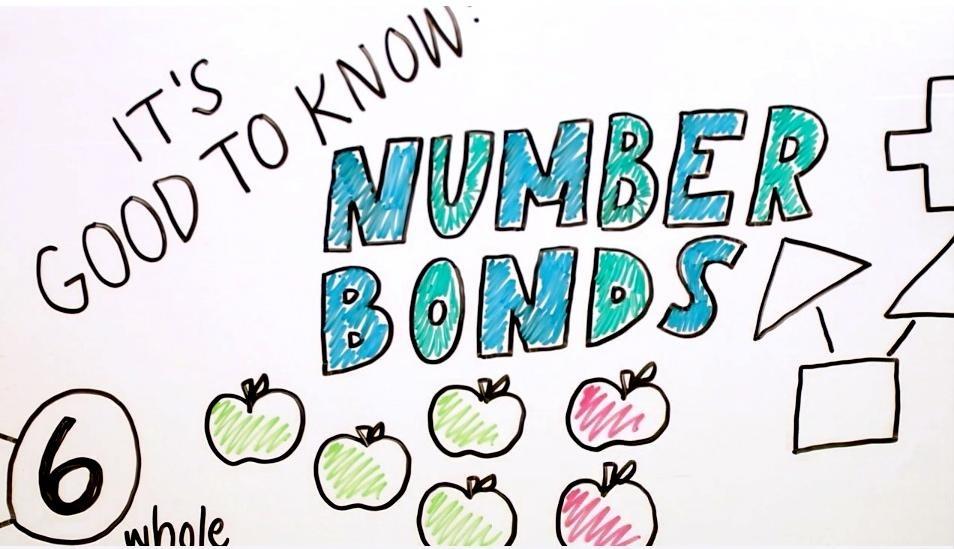 IT'S
GOOD TO KNOW:
NUMBER
BONDS
6
whole